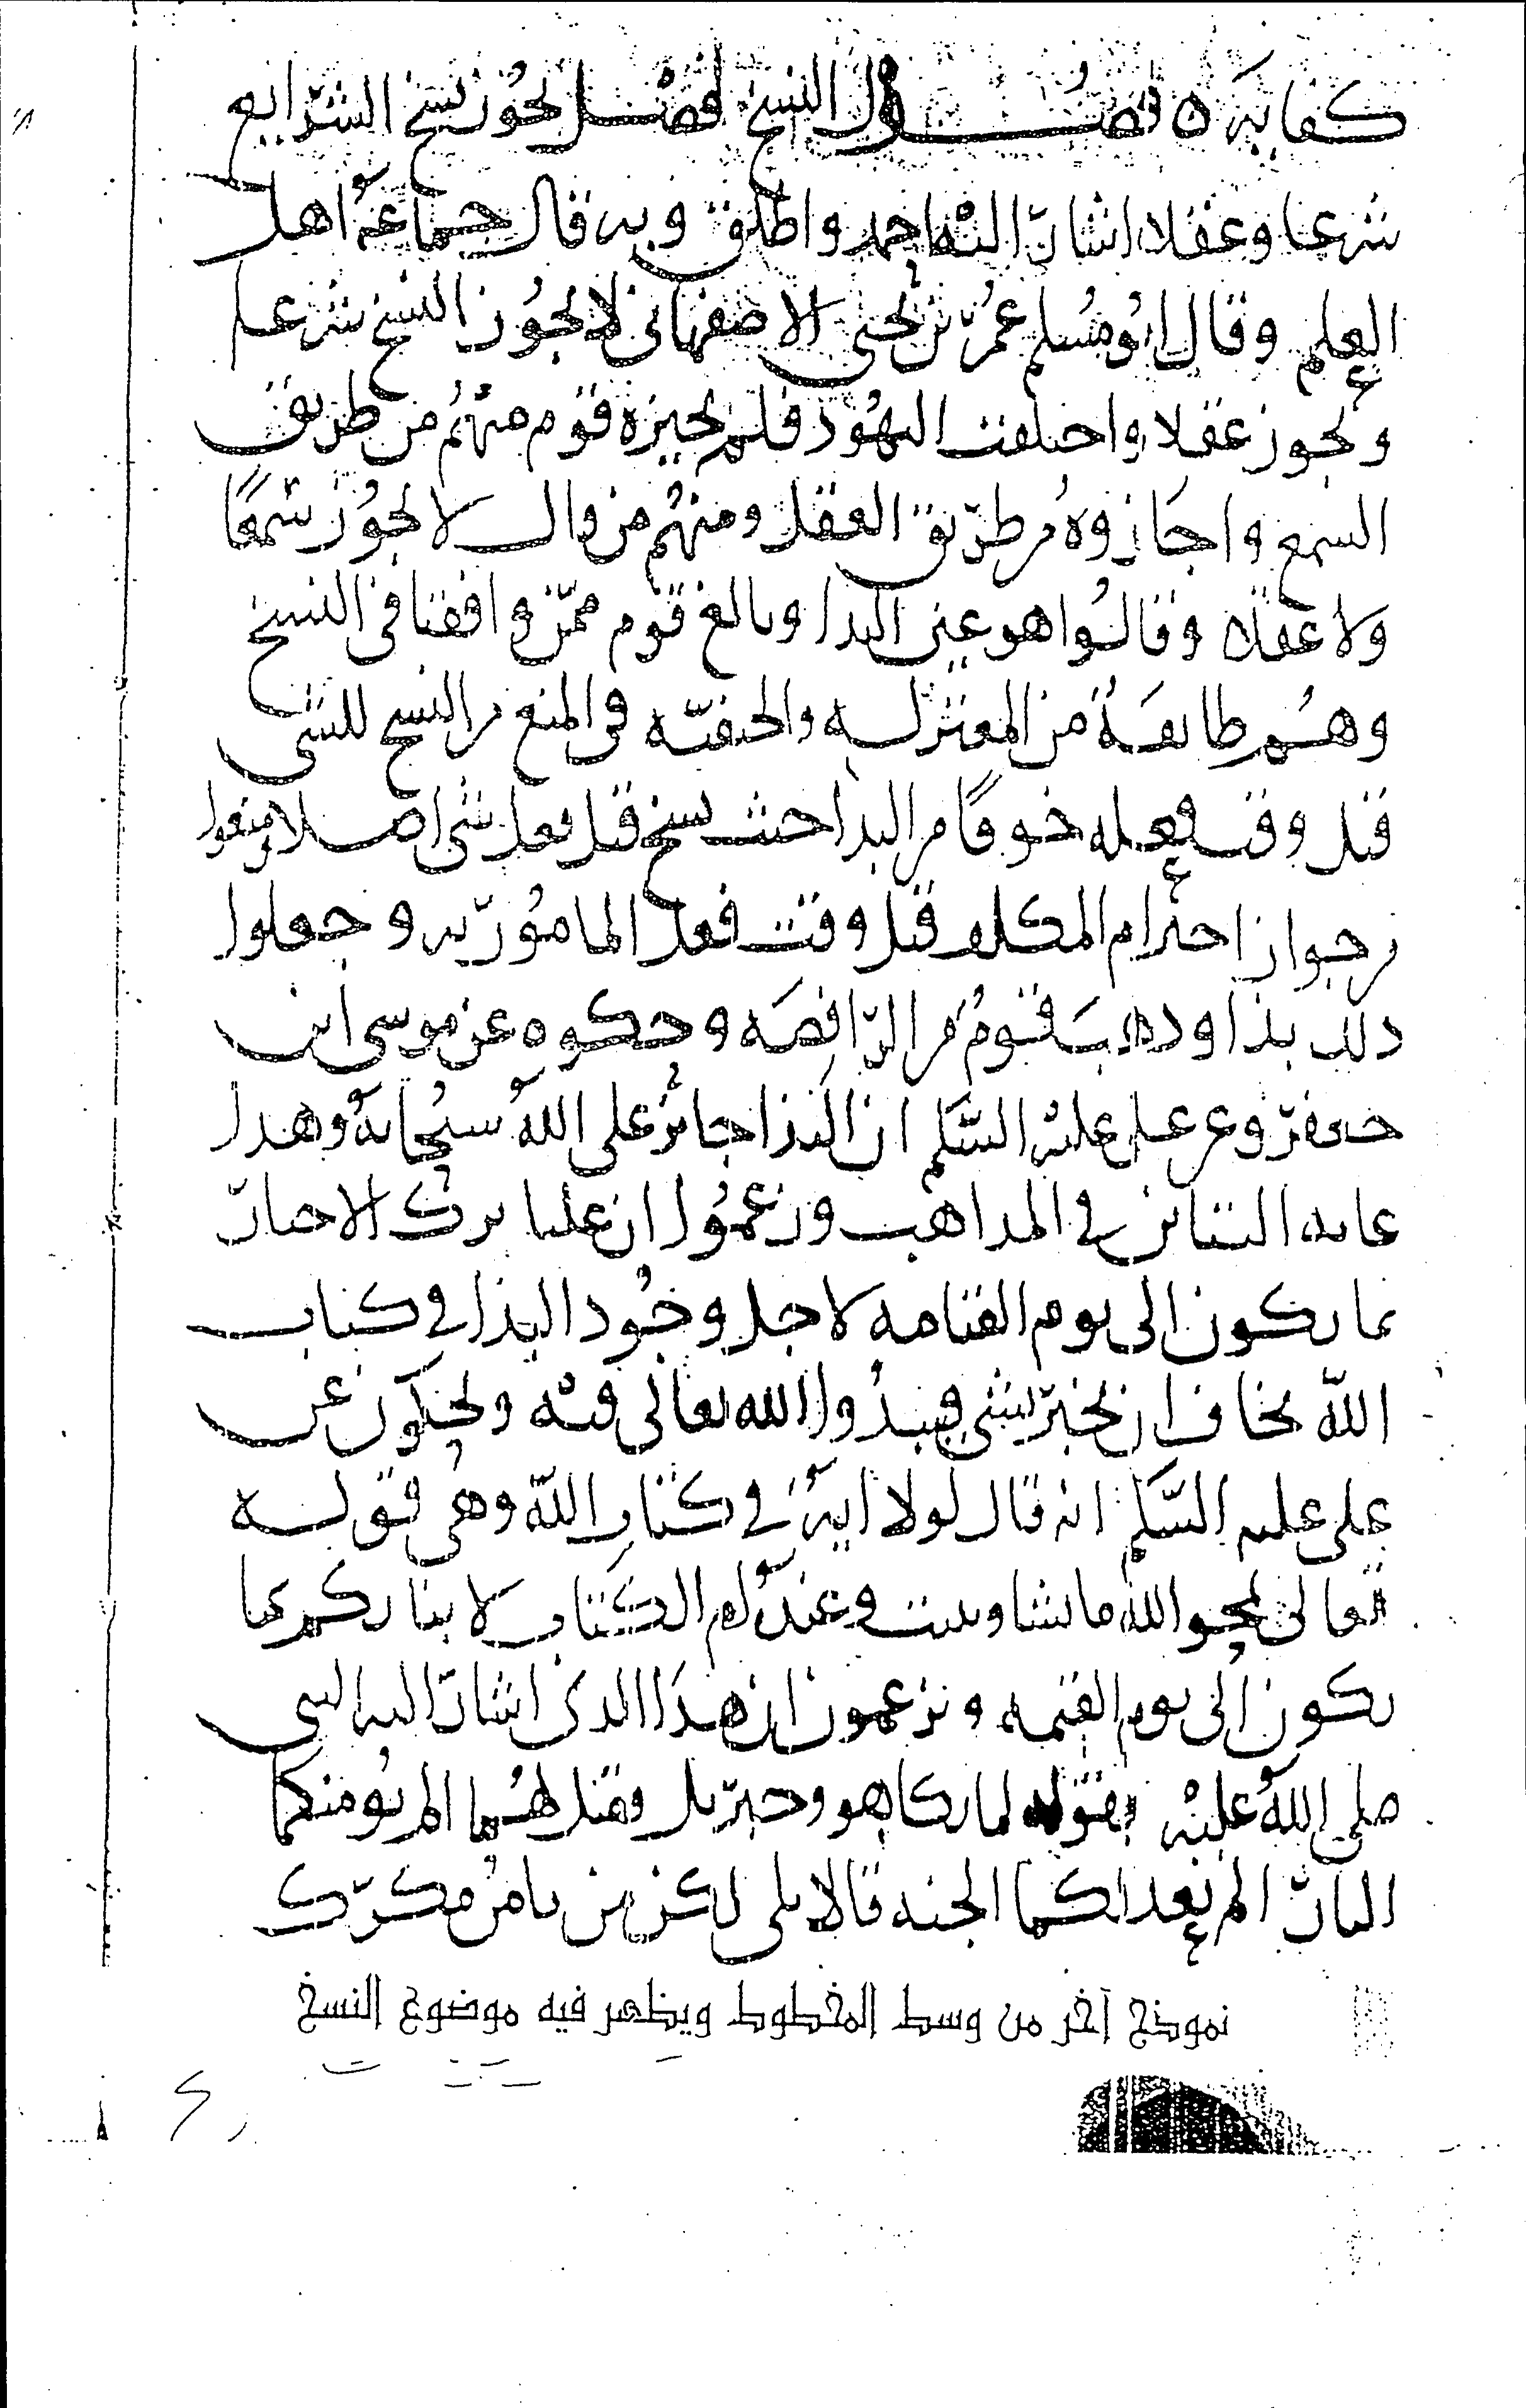 كفاية ه فصول النسخ فصل يجوز نسخ الشرايع
شرعا وعقلا اشار اليه احمد واطلق وبه قال جماعة اهل
العلم وقال ابو مسلم عمر بن يحيى الاصفهاني لا يجوز النسخ شرعا
ويجوز عقلا واختلفت اليهود فلم يجيزه قوم منهم من طريق
السمع واجازوه من طريق العقل ومنهم من قال لا يجوز سمعا
ولا عقلا وقالوا هو عين البدا وبالغ قوم ممن وافقنا في النسخ
وهم طايفة من المعتزلة والحنفية في المنع من النسخ للشي
قبل وقت فعله خوفا من البدا حيث نسخ قبل فعل شي اصلا ومنعوا
من جواز اخترام المكلف قبل وقت فعل المامور به وجعلوا
ذلك بدا وذهب قوم من الرافضة وحكوه عن موسى ابن
جعفر وعن علي عليه السلم ان البدا جائز على الله سبحانه وهذا
غاية التباين في المذاهب وزعموا ان عليا ترك الاخبار
بما يكون الى يوم القيامة لاجل وجود البدا في كتاب
الله يخاف ان يخبر بشي فيبدوا الله تعالى فيه ويحكون عن
علي عليه السلم انه قال لولا اية في كتاب الله وهي قوله
تعالى يمحو الله ما يشا ويثبت وعنده ام الكتاب لانباتكم بما
يكون الى يوم القيمة ويزعمون ان هذا الذي اشار اليه النبي
صلى الله عليه بقوله لما بكا هو وجبريل وقيل لهما الم نومنكما
النار الم نعداكما الجنة قالا بلى لكن من يامن مكرك
نموذج آخر من وسط المخطوط ويظهر فيه موضوع النسخ